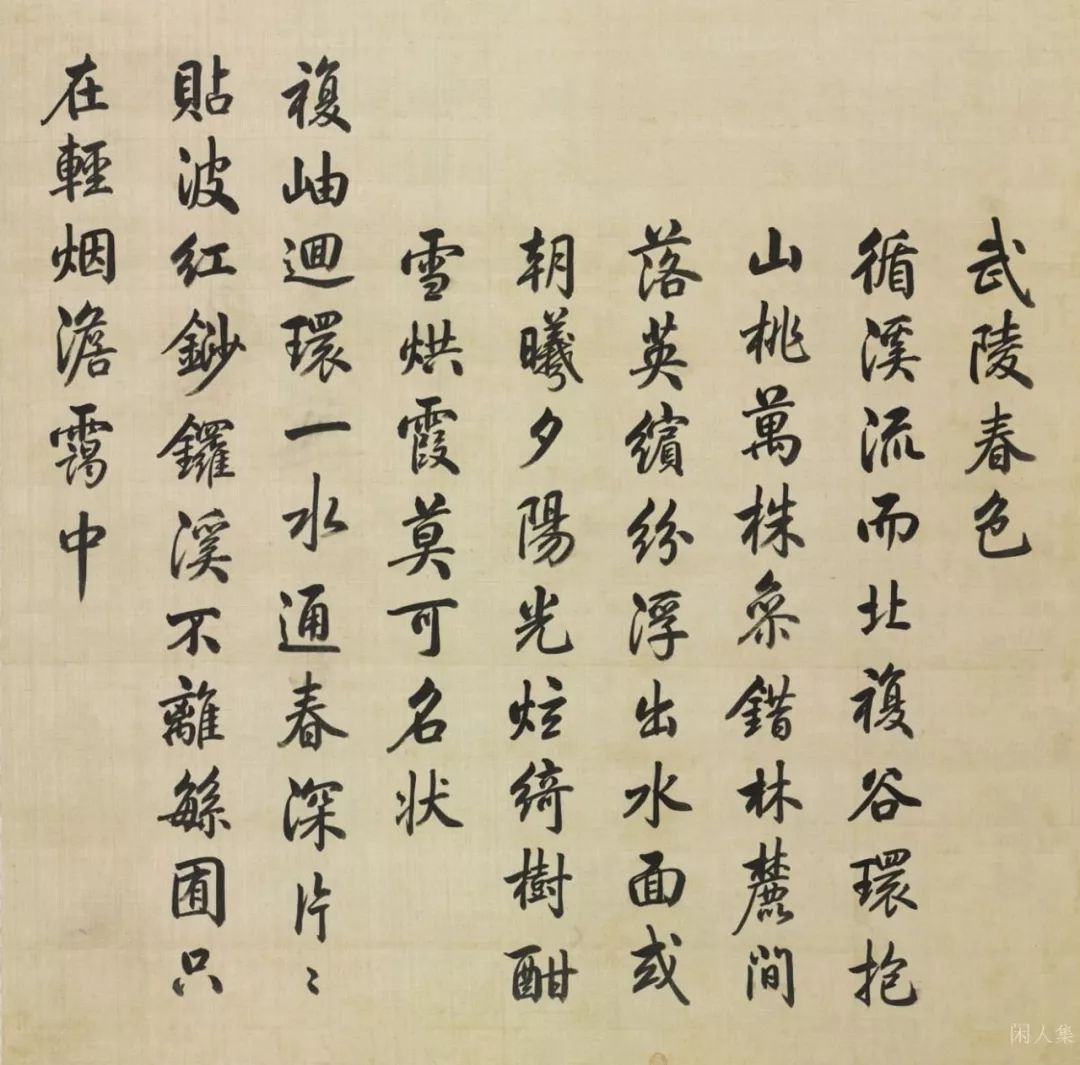 武陵春色
循溪流而北複谷環抱
山桃萬株叅錯林麓間
落英繽紛浮出水面或
朝曦夕陽光炫綺樹酣
雪烘霞莫可名狀
複岫迴環一水通春深片〻
貼波紅鈔鑼溪不離繇囿只
在輕烟澹靄中
闲人集